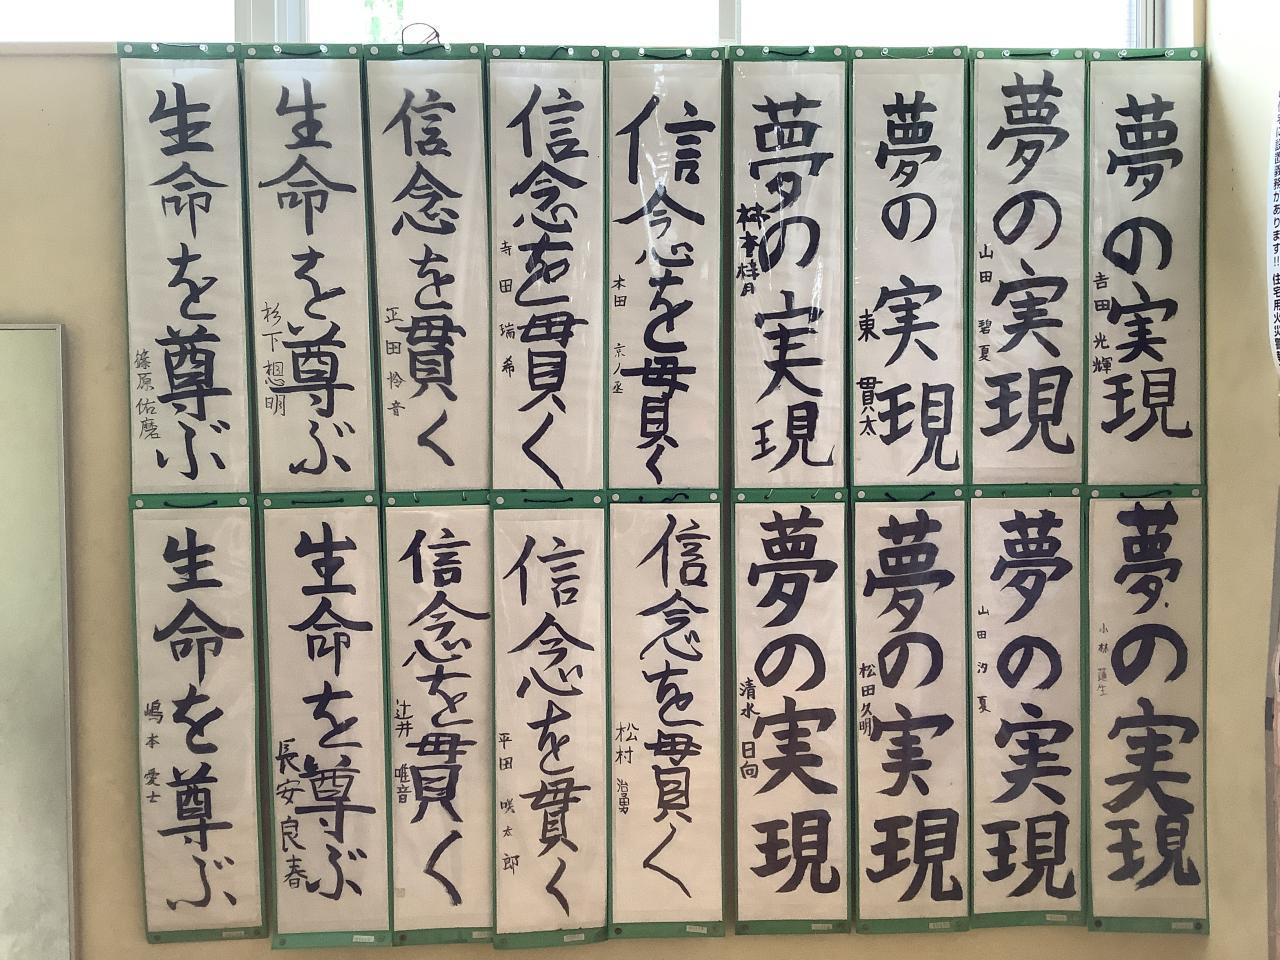 夢の実現
吉田 光輝
夢の実現
山田 碧夏
夢の実現
東 貫太
夢の実現
信念を貫く
木田 京ノ丞
信念を貫く
寺田 瑞希
信念を貫く
正田 怜音
生命を尊ぶ
杉下 想明
生命を尊ぶ
篠原佑磨
夢の実現
小林 蓮生
夢の実現
山田 汐夏
夢の実現
松田久明
夢の実現
清水 日向
信念を貫く
松村 治勇
信念を貫く
平田 咲太郎
信念を貫く
辻井 唯音
生命を尊ぶ
長安良春
生命を尊ぶ
嶋本 愛士
設置義務があります!!住宅用火災警